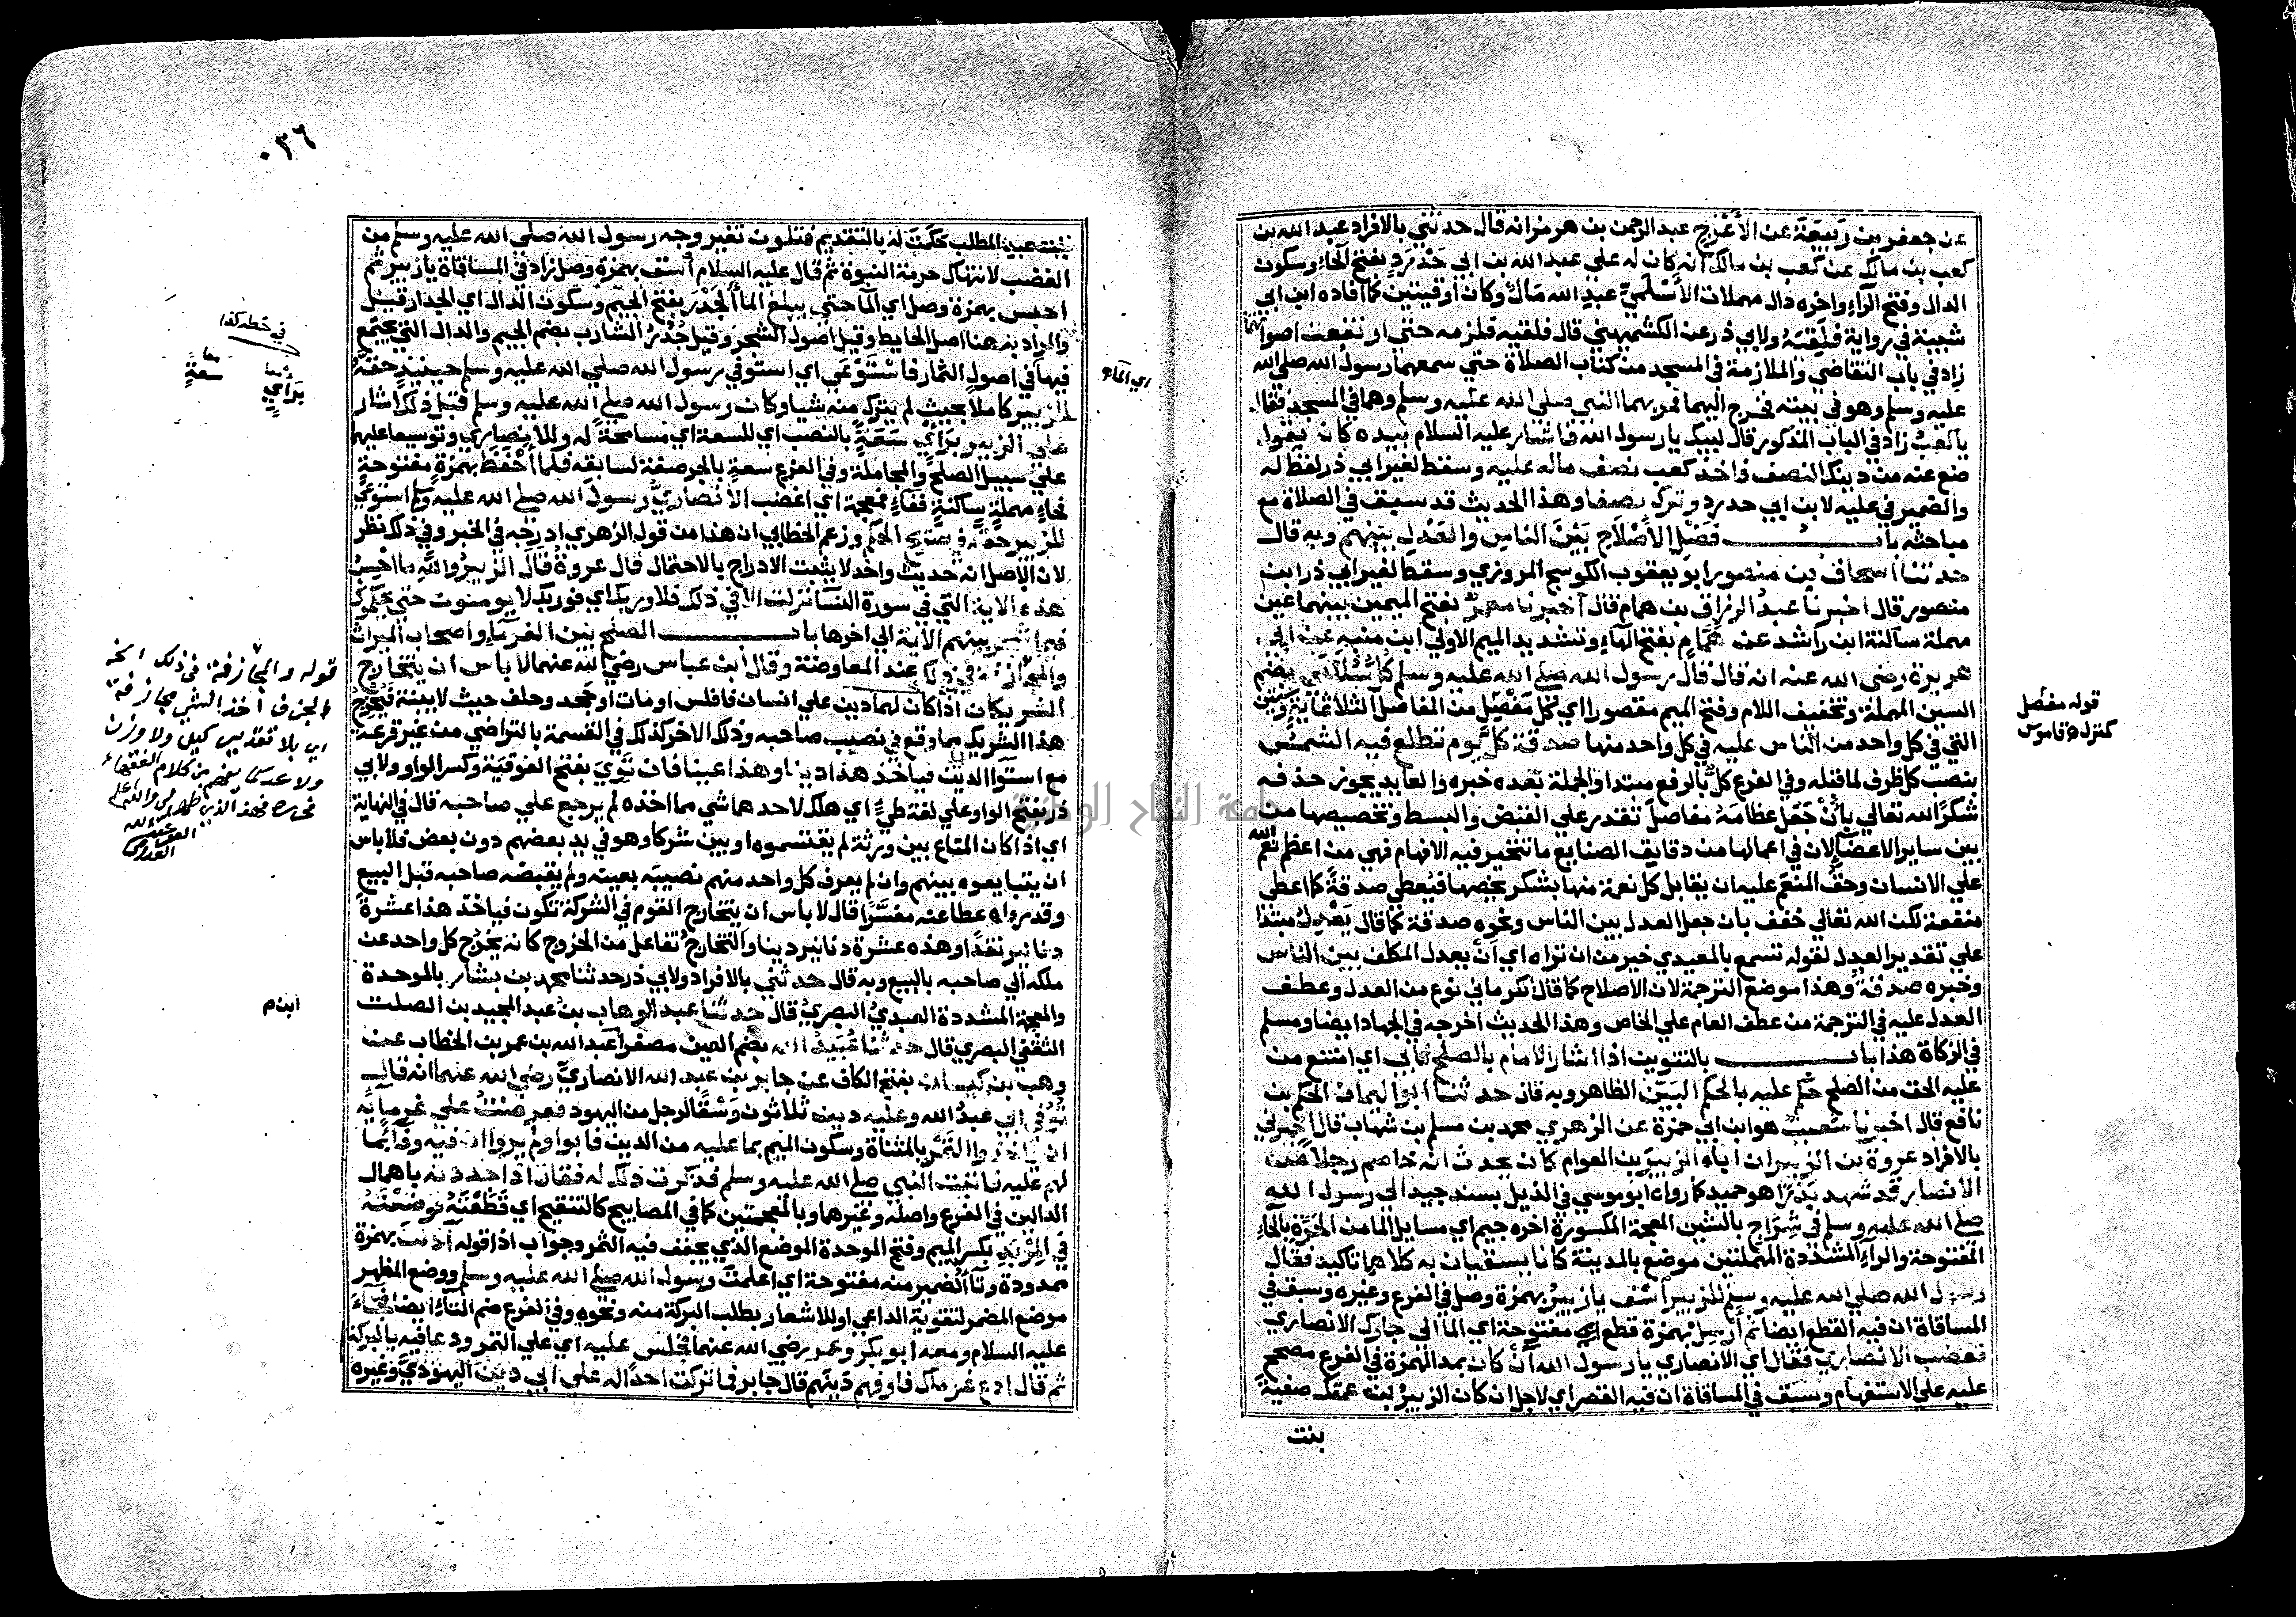 عن جعفر بن ربيعة عن الأعرج عبد الرحمن بن هرمز انه قال حدثني بالافراد عبد الله بن
كعب بن مالك عن كعب بن مالك انه كان له علي عبد الله بن ابي حدرد بفتح الحاء وسكون
الدال وفتح الراء واخره دال مهملات الأسلمي عبد الله مال وكان اوقيتين كما افاده ابن ابي
شيبة في رواية فلقيه ولابي ذر عن الكشميهني قال فلقيه فلزمه حتي ارتفعت اصواتهما
زاد في باب التقاضي والملازمة في المسجد من كتاب الصلاة حتي سمعهما رسول الله صلي الله
عليه وسلم وهو في بيته فخرج اليهما فمر بهما النبي صلي الله عليه وسلم وهما في المسجد فقال
يا كعب زاد في الباب المذكور قال لبيك يا رسول الله فاشار عليه السلام بيده كانه يقول
ضع عنه من دينك النصف فاخذ كعب نصف ماله عليه وسقط لغير ابي ذر لفظ له
والضمير في عليه لابن ابي حدرد وترك نصفا وهذا الحديث قد سبق في الصلاة مع
مباحثه باب فضل الاصلاح بين الناس والعدل بينهم وبه قال
حدثنا اسحاق بن منصور ابو يعقوب الكوسج المروزي وسقط لغير ابي ذر ابن
منصور قال اخبرنا عبد الرزاق بن همام قال اخبرنا معمر بفتح الميمين بينهما عين
مهملة ساكنة ابن راشد عن همام بفتح الهاء وتشديد الميم الاولي ابن منبه عن ابي
هريرة رضي الله عنه انه قال قال رسول الله صلي الله عليه وسلم كل سلامي بضم
السين المهملة وتخفيف اللام وفتح الميم مقصورا اي كل مفصل من المفاصل الثلاثمائة وستين
التي في كل واحد من الناس عليه في كل واحد منها صدقة كل يوم تطلع فيه الشمس
بنصب كل ظرف لما قبله وفي الفرع كل بالرفع مبتدا والجملة بعده خبره والعايد يجوز حذفه
شكرا لله تعالي بان جعل عظامه مفاصل تقدر علي القبض والبسط وتخصيصها من
بين ساير الاعضاء لان في اعمالها من دقايق الصنايع ما تتحير فيه الافهام فهي من اعظم نعم الله
علي الانسان وحق المنعم عليه ان يقابل كل نعمة منها بشكر يخصها فيعطي صدقة كما اعطي
منفعة لكن الله تعالي خفف بان جعل العدل بين الناس ونحوه صدقة كما قال يعدل مبتدا
علي تقدير العدل لقوله تسمع بالمعيدي خير من ان تراه اي ان يعدل المكلف بين الناس
وخبره صدقة وهذا موضع الترجمة لان الاصلاح كما قال الكرماني نوع من العدل وعطف
العدل عليه في الترجمة من عطف العام علي الخاص وهذا الحديث اخرجه في الجهاد ايضا ومسلم
في الزكاة هذا باب بالتنوين اذا اشار الامام بالصلح فابي اي امتنع من
عليه الحق من الصلح حكم عليه بالحكم البين الظاهر وبه قال حدثنا ابو اليمان الحكم بن
نافع قال اخبرنا شعيب هو ابن ابي حمزة عن الزهري محمد بن مسلم بن شهاب قال اخبرني
بالافراد عروة بن الزبير ان اباه الزبير بن العوام كان يحدث انه خاصم رجلا من
الانصار قد شهد بدرا هو حميد كما رواه ابو موسي في الذيل بسند جيد الي رسول الله
صلي الله عليه وسلم في شراج بالشين المعجمة المكسورة اخره جيم اي مسايل الما من الحرة بالحاء
المفتوحة والراء المشددة المهملتين موضع بالمدينة كانا يسقيان به كلاهما تاكيد فقال
رسول الله صلي الله عليه وسلم للزبير أسق يا زبير بهمزة وصل في الفرع وغيره وسبق في
المساقاة ان فيه القطع ايضا ثم أرسل بهمزة قطع مفتوحة اي الما الي جارك الانصاري
فغضب الانصاري فقال اي الانصاري يا رسول الله آن كان بمد الهمزة في الفرع مصحح
عليه علي الاستفهام وسبق في المساقاة ان فيه القصر اي لاجل ان كان الزبير بن عمتك صفية
بنت
قوله مفصل
كمنزل ه قاموس
٠٣٦
بنت عبد المطلب حكمت له بالتقديم فتلون تغير وجه رسول الله صلي الله عليه وسلم من
الغضب لانتهاك حرمة النبوة ثم قال عليه السلام أسق بهمزة وصل زاد في المساقاة يا زبير ثم
احبس بهمزة وصل اي الما حتي يبلغ الما الجدر بفتح الجيم وسكون الدال اي الجدار قيل
والمراد به هنا اصل الحايط وقيل اصول الشجر وقيل جدر الشارب بضم الجيم والدال التي يجتمع
فيها في اصول الثمار فاستوعي اي استوفي رسول الله صلي الله عليه وسلم حينئذ حقه
للزبير كاملا بحيث لم يترك منه شيا وكان رسول الله صلي الله عليه وسلم قبل ذلك اشار
علي الزبير براي سعة بالنصب اي للسعة اي مسامحة له وللانصاري وتوسيعا عليهما
علي سبيل الصلح والمجاملة وفي الفرع سعة بالجر صفة لسابقه فلما أحفظ بهمزة مفتوحة
فحاء مهملة ساكنة ففاء فمعجمة اي اغضب الانصاري رسول الله صلي الله عليه وسلم استوعي
للزبير حقه في صريح الحكم وزعم الخطابي ان هذا من قول الزهري ادرجه في الخبر وفي ذلك نظر
لان الاصل انه حديث واحد لا يثبت الادراج بالاحتمال قال عروة قال الزبير والله ما احسب
هذه الاية التي في سورة النسا نزلت الا في ذلك فلا وربك اي فوربك لا يومنون حتي يحكموك
فيما شجر بينهم الاية الي اخرها باب الصلح بين الغرماء واصحاب الميراث
والمجازفة في ذلك عند المعاوضة وقال ابن عباس رضي الله عنهما لا باس ان يتخارج
الشريكان اذا كان لهما دين علي انسان فافلس او مات او جحد وحلف حيث لا بينة فيخرج
هذا الشريك مما وقع في نصيب صاحبه وذلك الاخر كذلك في القسمة بالتراضي من غير قرعة
مع استوا الدين فياخذ هذا دينا وهذا عينا فان توي بفتح الفوقية وكسر الواو ولابي
ذر بفتح الواو علي لغة طي اي هلك لاحدهما شي مما اخذه لم يرجع علي صاحبه قال في النهاية
اي اذا كان المتاع بين ورثة لم يقتسموه او بين شركا وهو في يد بعضهم دون بعض فلا باس
ان يتبايعوه بينهم وان لم يعرف كل واحد منهم نصيبه بعينه ولم يقبضه صاحبه قبل البيع
وقد رواه عطا عنه مفسرا قال لا باس ان يتخارج القوم في الشركة تكون فياخذ هذا عشرة
دنانير نقدا وهذه عشرة دنانير دينا والتخارج تفاعل من الخروج كانه يخرج كل واحد عن
ملكه الي صاحبه بالبيع وبه قال حدثني بالافراد ولابي ذر حدثنا محمد بن بشار بالموحدة
والمعجمة المشددة العبدي البصري قال حدثنا عبد الوهاب بن عبد المجيد بن الصلت
الثقفي البصري قال حدثنا عبيد الله بضم العين مصغرا عبد الله بن عمر بن الخطاب عن
وهب بن كيسان بفتح الكاف عن جابر بن عبد الله الانصاري رضي الله عنهما انه قال
توفي ابي عبد الله وعليه دين ثلاثون وسقا لرجل من اليهود فعرضت علي غرمايه
ان ياخذوا التمر بالمثناة وسكون الميم بما عليه من الدين فابوا ولم يروا ان فيه وفا بما
لهم عليه فاتيت النبي صلي الله عليه وسلم فذكرت ذلك له فقال اذا جددته باهمال
الدالين في الفرع واصله وغيرهما وبالمعجمتين كما في المصابيح كالتنقيح اي قطعته فوضعته
في المربد بكسر الميم وفتح الموحدة الموضع الذي يجفف فيه الثمر وجواب اذا قوله آذنت بهمزة
ممدودة وتا الضمير منه مفتوحة اي اعلمت رسول الله صلي الله عليه وسلم ووضع المظهر
موضع المضمر لتقوية الداعي او للاشعار بطلب البركة منه ونحوه وفي الفرع ضم التاء ايضا فجاء
عليه السلام ومعه ابو بكر وعمر رضي الله عنهما فجلس عليه اي علي التمر ودعا فيه بالبركة
ثم قال ادع غرماك فاوفهم دينهم قال جابر فما تركت احدا له علي ابي دين اليهودي وغيره
اي الماء
في خطه كذا
معا
براي
معا
سعة
قوله والمجازفة في ذلك الخ
الجزاف اخذ الشي مجازفة
اي بلا تقدير كيل ولا وزن
ولا عد
ابن م